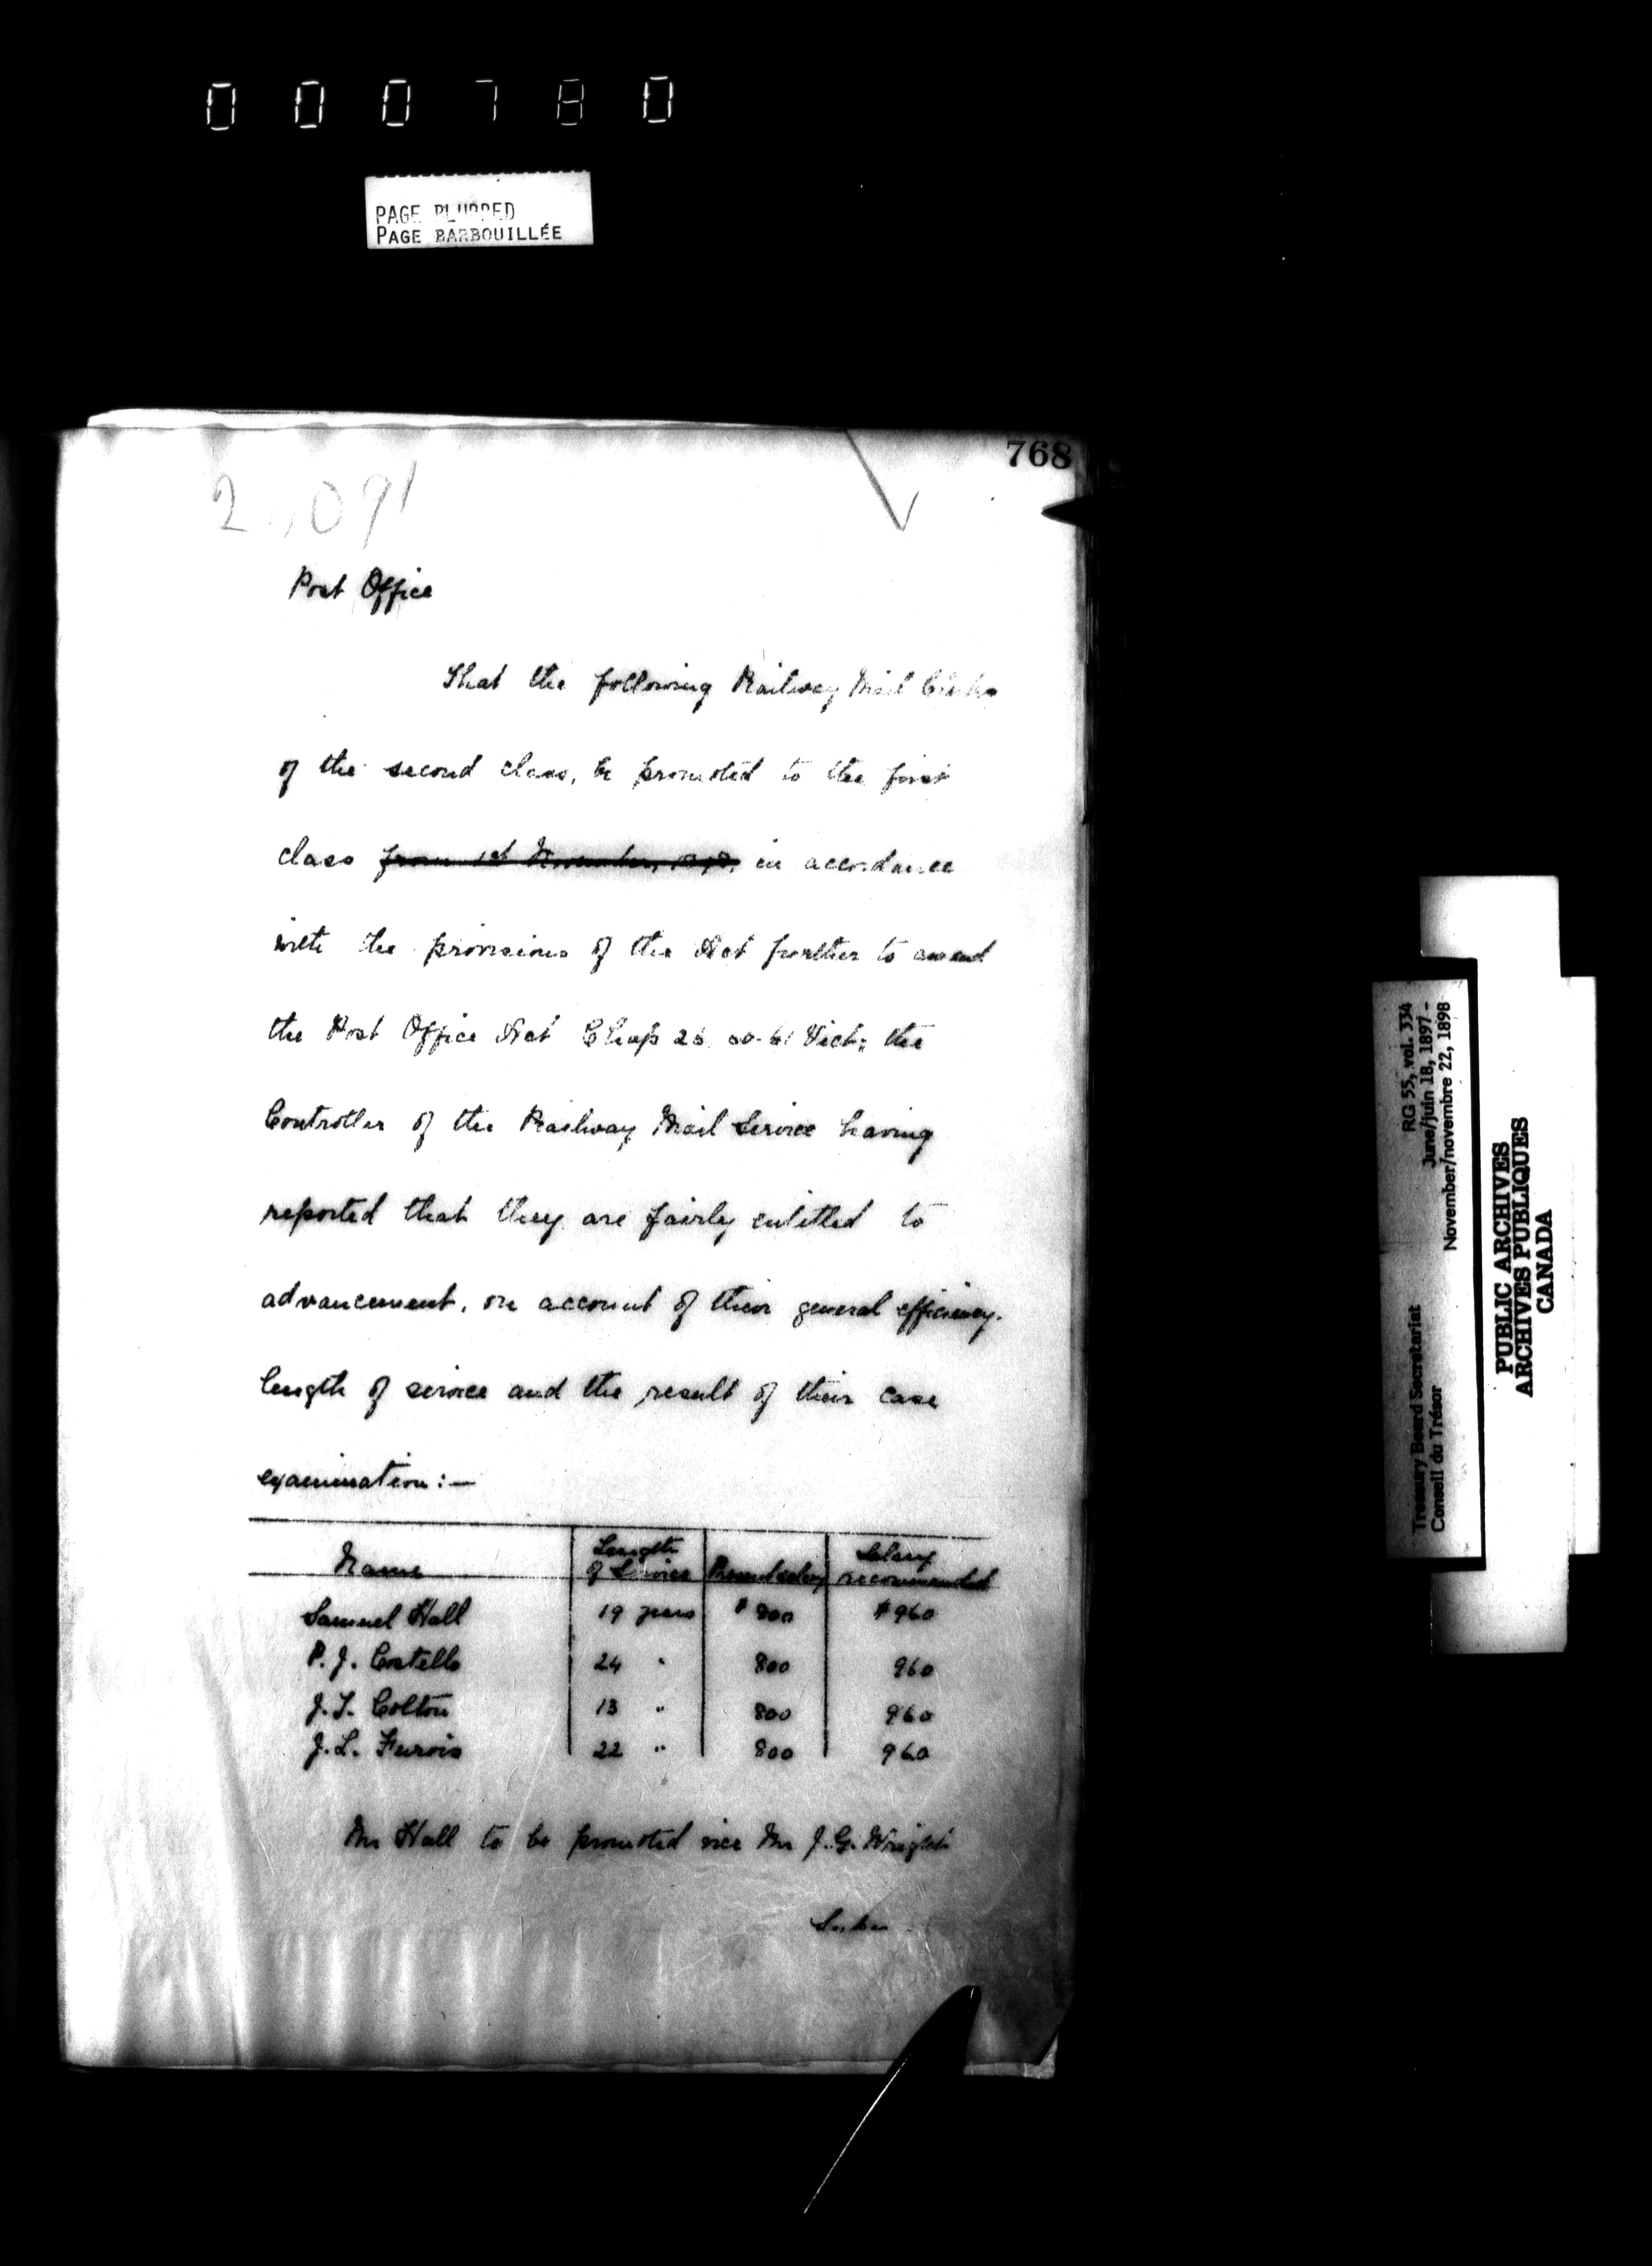 000780
PAGE BLURRED
PAGE BARBOUILLÉE
768
2,091
Post Office
That the following Railway Mail Clerks
of the second class, be promoted to the first
class from 1st November, 1898, in accordance
with the provisions of the Act further to amend
the Post Office Act Chap 26 60-61 Vict; the
Controller of the Railway Mail Service having
reported that they are fairly entitled to
advancement, on account of their general efficiency,
length of service and the result of their case
examination:—
Name Length of Service Present salary Salary recommended
Samuel Hall 19 years $800 $960
P. J. Costello 24 " 800 960
J. T. Colton 13 " 800 960
J. L. Furois 22 " 800 960
Mr Hall to be promoted vice Mr J. G. Wright
Treasury Board Secretariat RG 55, vol. 334
Conseil du Trésor June/juin 18, 1897 -
November/novembre 22, 1898
PUBLIC ARCHIVES
ARCHIVES PUBLIQUES
CANADA